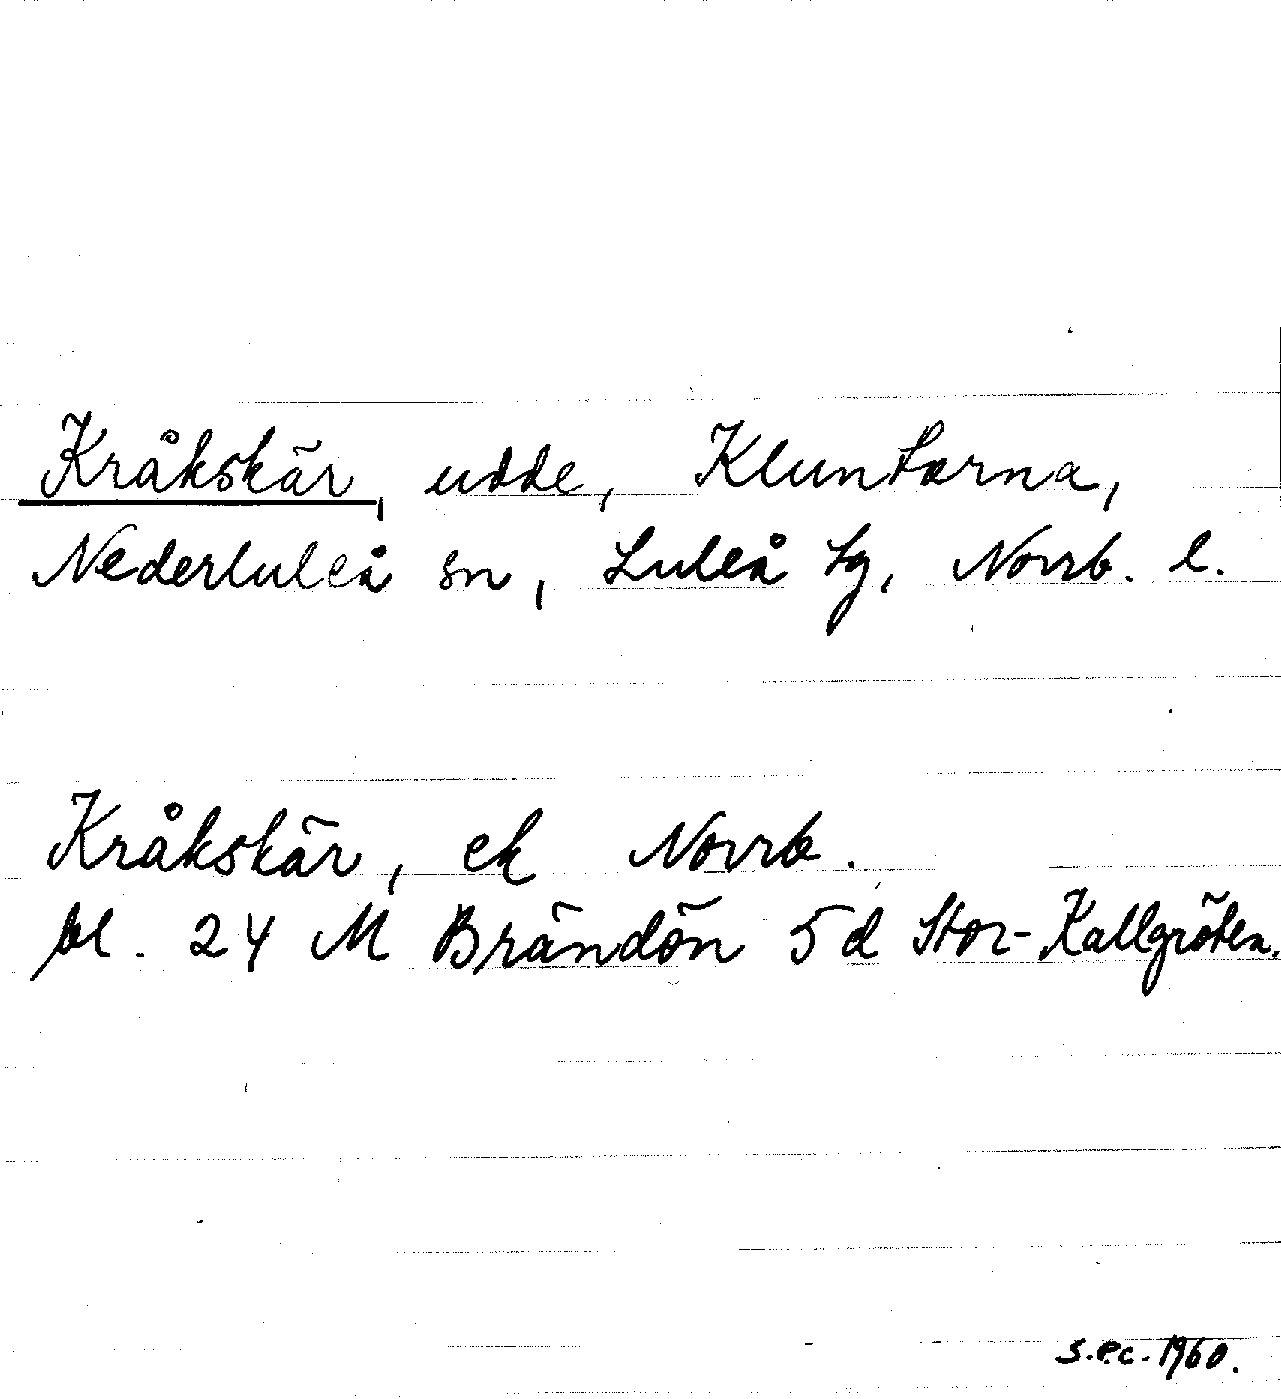 Kråkskär, udde, Kluntarna,
Nederluleå sn, Luleå tg, Norrb. l.
Kråkskär, ek Norrb.
bl. 24 M Brändön 5d Stor-Kallgröten.
s.ec.1960.